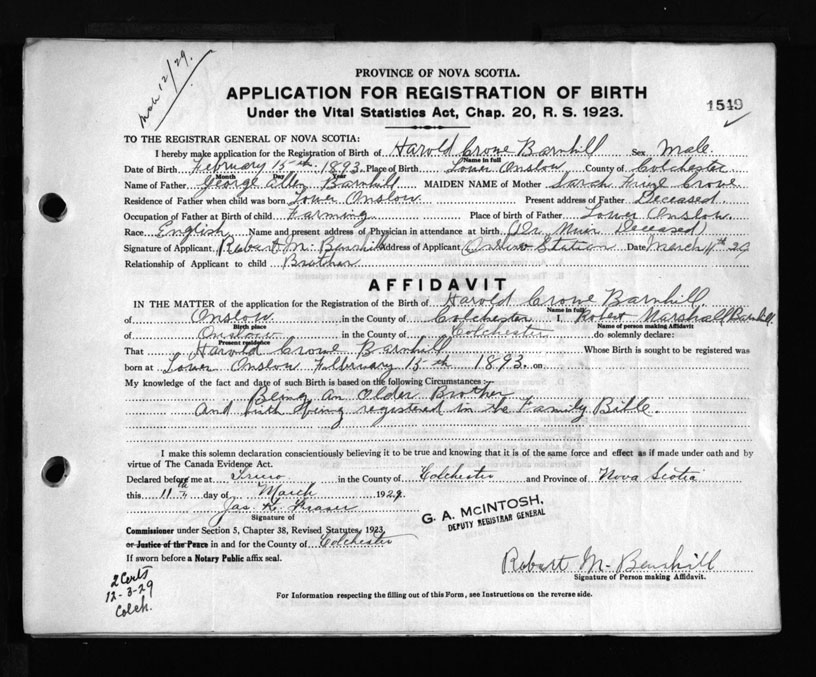 Mch 12/29.
PROVINCE OF NOVA SCOTIA.
APPLICATION FOR REGISTRATION OF BIRTH
1549
Under the Vital Statistics Act, Chap. 20, R. S. 1923.
TO THE REGISTRAR GENERAL OF NOVA SCOTIA:
I hereby make application for the Registration of Birth of Harold Crowe Barnhill Sex Male
Name in full
Date of Birth February 15th 1893. Place of Birth Lower Onslow County of Colchester
Month Day Year
Name of Father George Barnhill MAIDEN NAME of Mother Sarah Crowe
Residence of Father when child was born Lower Onslow Present address of Father Deceased
Occupation of Father at Birth of child Farming Place of birth of Father Lower Onslow
Race English Name and present address of Physician in attendance at birth (Dr. Muir Deceased)
Signature of Applicant Robert M. Barnhill Address of Applicant Onslow Station Date March 11th 29
Relationship of Applicant to child Brother
AFFIDAVIT
IN THE MATTER of the application for the Registration of the Birth of Harold Crowe Barnhill.
Name in full
of Onslow in the County of Colchester I, Robert Marshall Barnhill.
Birth place Name of person making Affidavit
of Onslow in the County of Colchester do solemnly declare:
Present residence
That Harold Crowe Barnhill Whose Birth is sought to be registered was
born at Lower Onslow February 15th 1893. on
My knowledge of the fact and date of such Birth is based on the following Circumstances :-
Being An Older Brother
And birth being registered in the Family Bible.
I make this solemn declaration conscientiously believing it to be true and knowing that it is of the same force and effect as if made under oath and by
virtue of The Canada Evidence Act.
Declared before me at Truro in the County of Colchester and Province of Nova Scotia
this 11th day of March 1929.
Jas. Fraser
Signature of
G. A. McINTOSH,
DEPUTY REGISTRAR GENERAL
Commissioner under Section 5, Chapter 38, Revised Statutes, 1923,
or Justice of the Peace in and for the County of Colchester
If sworn before a Notary Public affix seal.
Robert M. Barnhill
Signature of Person making Affidavit.
2 Certs
12-3-29
Colch.
For Information respecting the filling out of this Form, see Instructions on the reverse side.